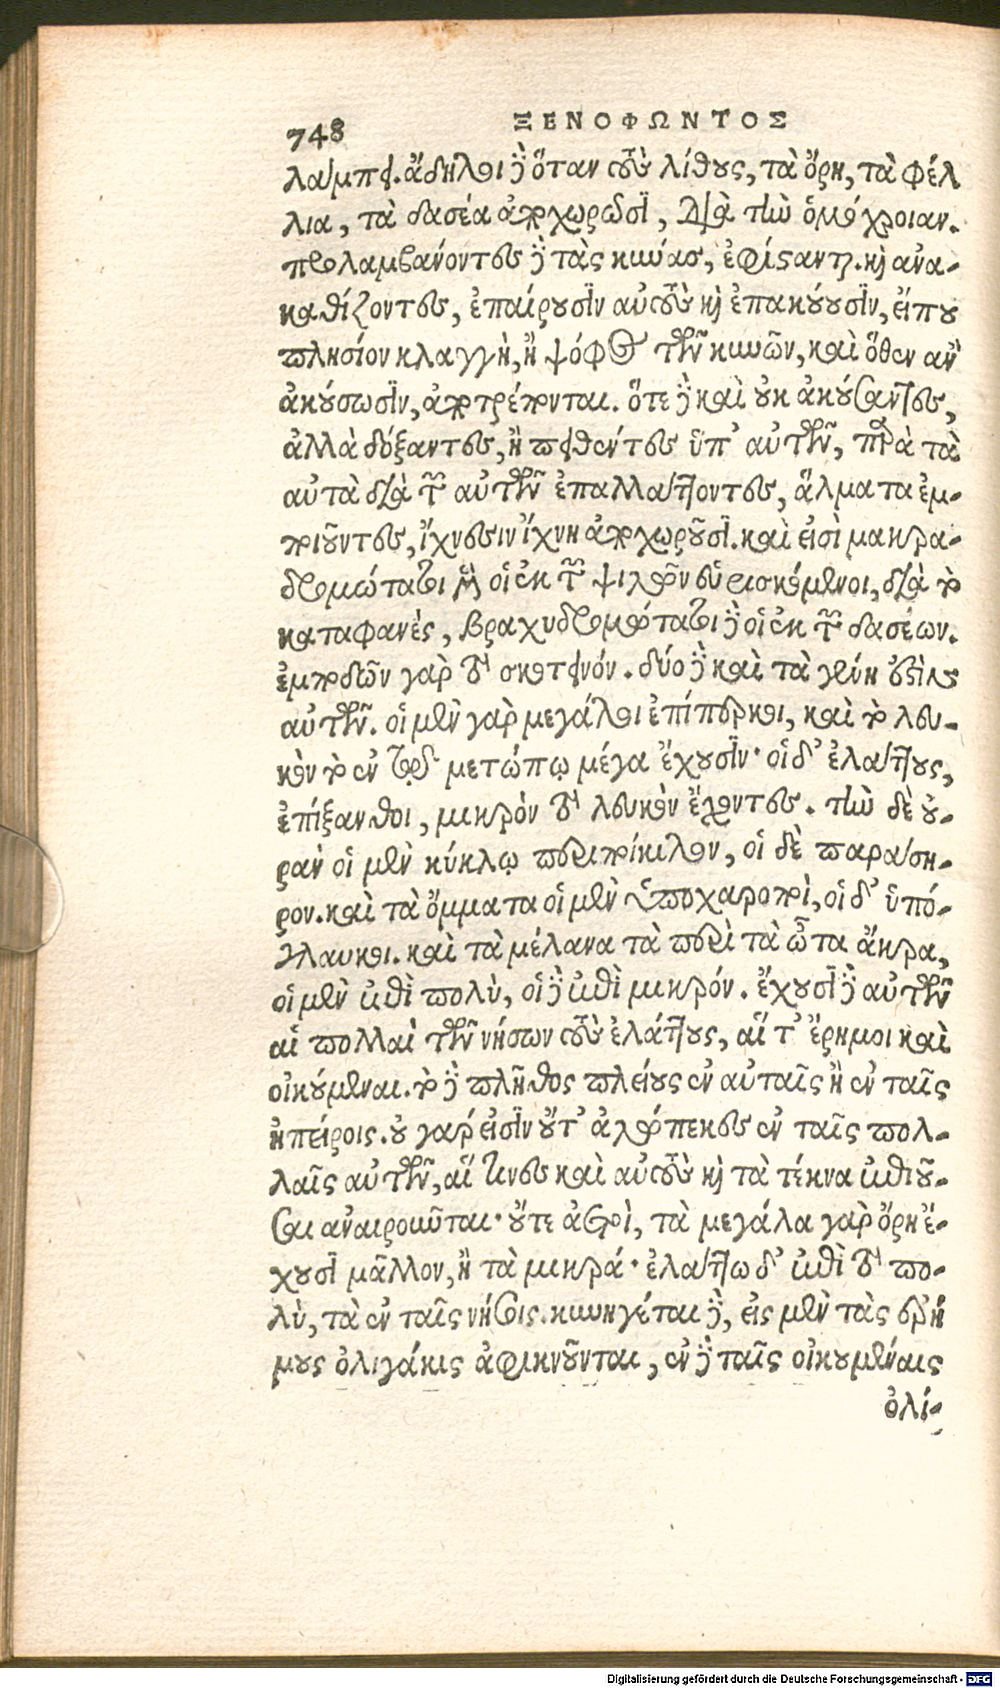 748 ΞΕΝΟΦΩΝΤΟΣ
λάμπει. ἄδηλοι δὲ ὅταν τοὺς λίθους, τὰ ὄρη, τὰ φέλ
λια, τὰ δασέα ἀποχωρῶσι, διὰ τὴν ὁμόχροιαν.
προλαμβάνοντες δὲ τὰς κύνας, ἐφίστανται. καὶ ἀνα-
καθίζοντες, ἐπαίρουσιν αὑτοὺς καὶ ἐπακούουσιν, εἴ που
πλησίον κλαγγὴ, ἢ ψόφος τῶν κυνῶν, καὶ ὅθεν ἂν
ἀκούσωσιν, ἀποτρέπονται. ὅτε δὲ καὶ οὐκ ἀκούσαντες,
ἀλλὰ δόξαντες, ἢ πεισθέντες ὑπ' αὑτῶν, παρὰ τὰ
αὐτὰ διὰ τῶν αὐτῶν ἐπαλλάττοντες, ἅλματα ἐμ-
ποιοῦντες, ἴχνεσιν ἴχνη ἀποχωροῦσι. καὶ εἰσὶ μακρο-
δρομώτατοι μὲν οἱ ἐκ τῶν ψιλῶν εὑρισκόμενοι, διὰ τὸ
καταφανὲς, βραχυδρομώτατοι δὲ οἱ ἐκ τῶν δασέων.
ἐμποδὼν γὰρ τὸ σκοτεινόν. δύο δὲ καὶ τὰ γένη ἐστὶν
αὐτῶν. οἱ μὲν γὰρ μεγάλοι ἐπίπερκοι, καὶ τὸ λευ-
κὸν τὸ ἐν τῷ μετώπῳ μέγα ἔχουσιν· οἱ δ' ἐλάττους,
ἐπίξανθοι, μικρὸν τὸ λευκὸν ἔχοντες. τὴν δὲ οὐ-
ρὰν οἱ μὲν κύκλῳ περιποίκιλον, οἱ δὲ παράση-
ρον. καὶ τὰ ὄμματα οἱ μὲν ὑποχαροποὶ, οἱ δ' ὑπό-
γλαυκοι. καὶ τὰ μέλανα τὰ περὶ τὰ ὦτα ἄκρα,
οἱ μὲν ἐπὶ πολὺ, οἱ δὲ ἐπὶ μικρόν. ἔχουσι δὲ αὐτῶν
αἱ πολλαὶ τῶν νήσων τοὺς ἐλάττους, αἵ τ' ἔρημοι καὶ
οἰκούμεναι. τὸ δὲ πλῆθος πλείους ἐν αὐταῖς ἢ ἐν ταῖς
ἠπείροις. οὐ γάρ εἰσιν οὔτ' ἀλώπεκες ἐν ταῖς πολ-
λαῖς αὐτῶν, αἵ τινες καὶ αὐτοὺς καὶ τὰ τέκνα ἐπιοῦ-
σαι ἀναιροῦνται· οὔτε ἀετοὶ, τὰ μεγάλα γὰρ ὄρη ἔ-
χουσι μᾶλλον, ἢ τὰ μικρά· ἐλάττω δ' ἐπὶ τὸ πο-
λὺ, τὰ ἐν ταῖς νήσοις. κυνηγέται δὲ, εἰς μὲν τὰς ἐρή
μους ὀλιγάκις ἀφικνοῦνται, ἐν δὲ ταῖς οἰκουμέναις
ὀλί-
Digitalisierung gefördert durch die Deutsche Forschungsgemeinschaft - DFG